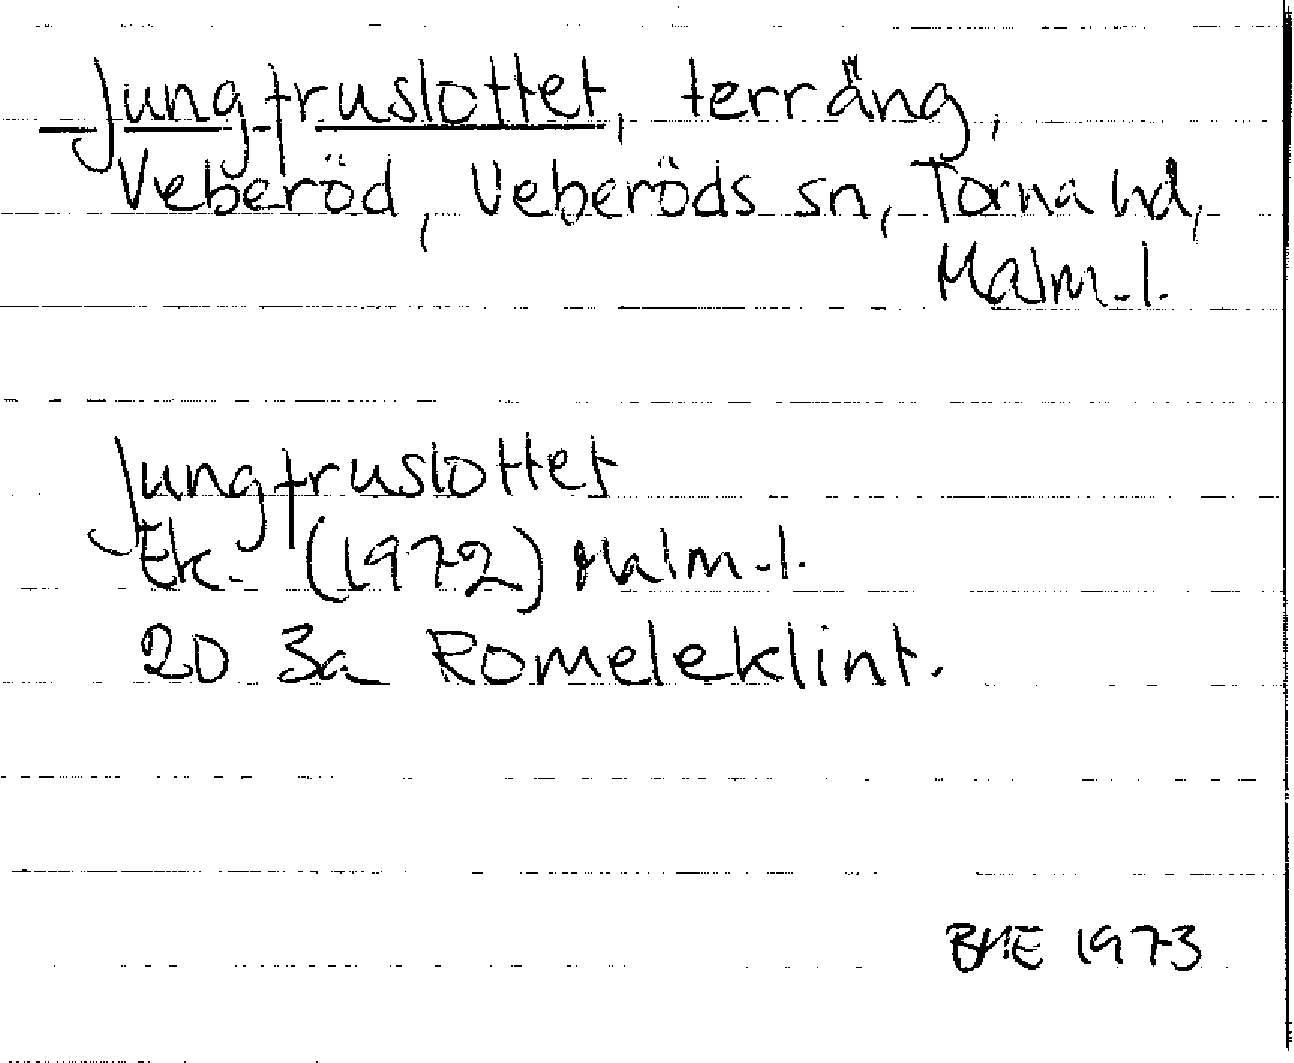 Jungfruslottet, terräng,
Veberöd, Veberöds sn, Torna hd,
Malm.l.
Jungfruslottet
Ek. (1972) Malm.l.
2D 3a Romeleklint.
BHE 1973